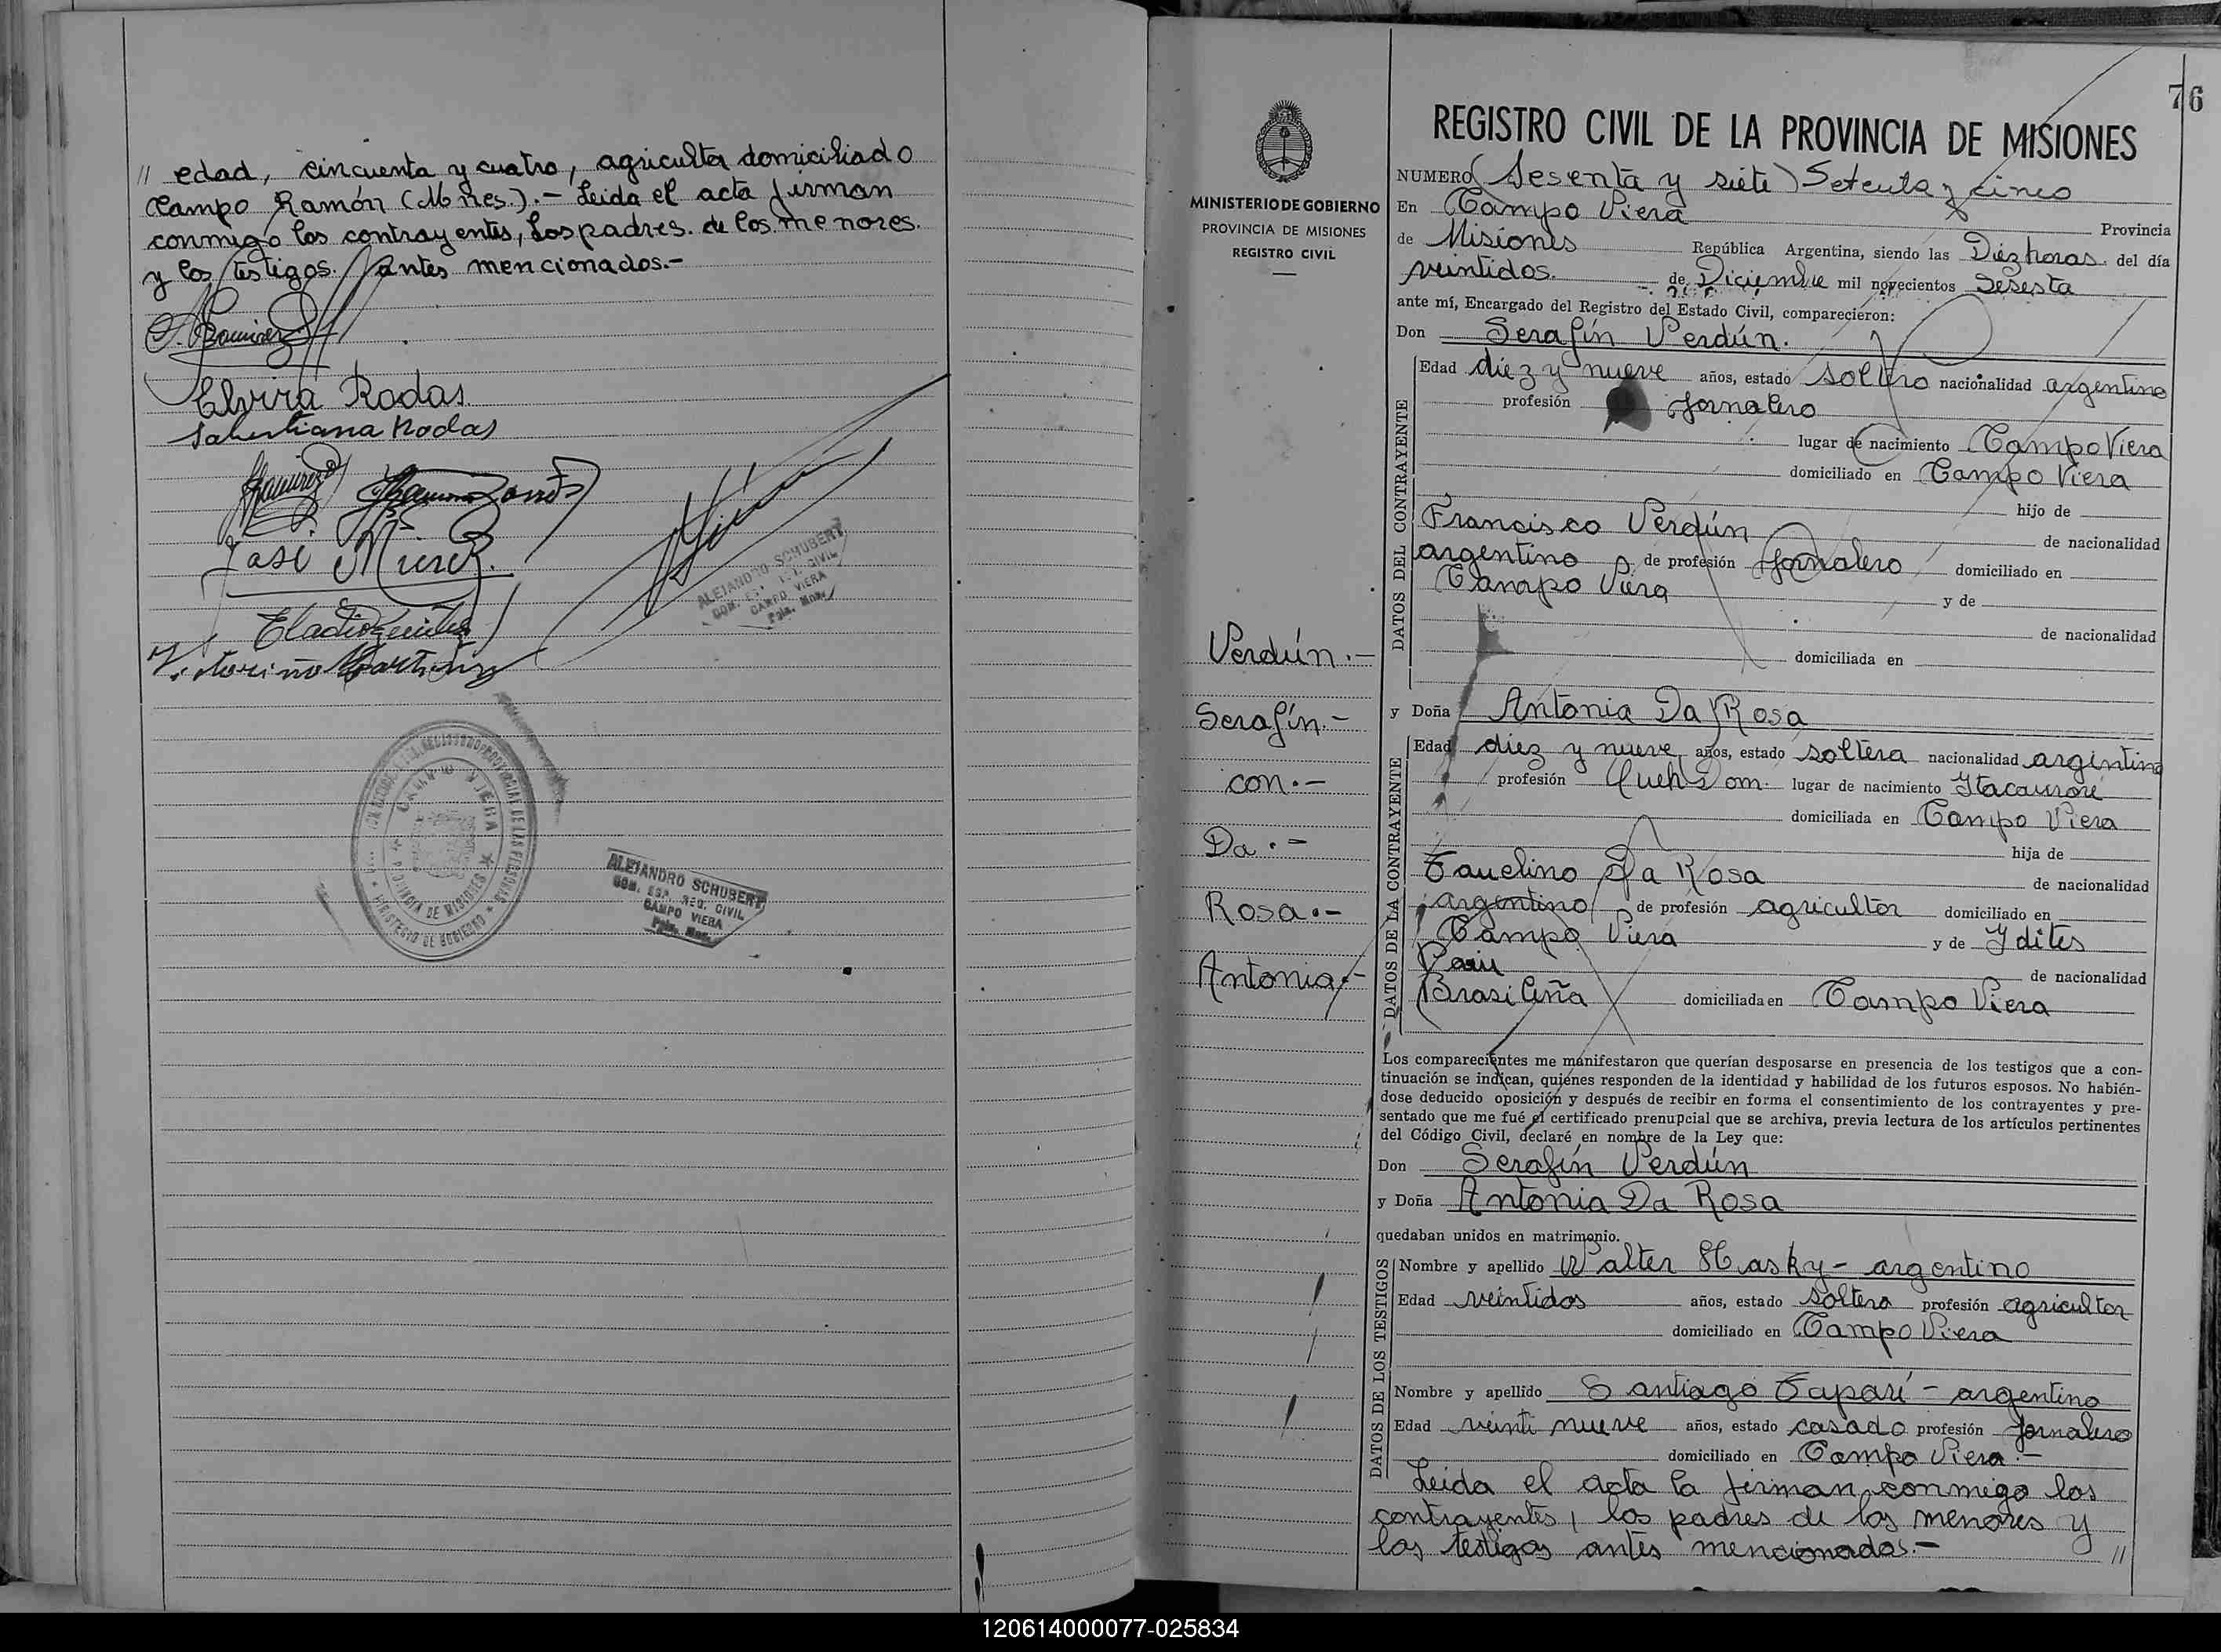 // edad, cincuenta y cuatro, agricultor domiciliado
Campo Ramón (Mnes.).- Leida el acta firman
conmigo los contrayentes, Los padres de los menores.
y los testigos antes mencionados.-
Elvira Rodas
Sabestiana Rodas
ALEJANDRO SCHUBERT
CAMPO VIERA
ALEJANDRO SCHUBERT
COM. ESP. REG. CIVIL
CAMPO VIERA
Pcia. Mnes.
76
MINISTERIO DE GOBIERNO
PROVINCIA DE MISIONES
REGISTRO CIVIL
Verdún.-
Serafín.-
con.-
Da.-
Rosa.-
Antonia.-
REGISTRO CIVIL DE LA PROVINCIA DE MISIONES
NUMERO (Sesenta y siete) Setenta y cinco
En Campo Viera Provincia
de Misiones República Argentina, siendo las Diez horas del día
veintidos. de Diciembre mil novecientos Sesesta
ante mí, Encargado del Registro del Estado Civil, comparecieron:
Don Serafín Verdún.
DATOS DEL CONTRAYENTE
Edad diez y nueve años, estado soltero nacionalidad argentino
profesión Jornalero
lugar de nacimiento Campo Viera
domiciliado en Campo Viera
hijo de
Francisco Verdún de nacionalidad
argentino de profesión Jornalero domiciliado en
Campo Viera y de
de nacionalidad
domiciliada en
y Doña Antonia Da Rosa
DATOS DE LA CONTRAYENTE
Edad diez y nueve años, estado soltera nacionalidad argentina
profesión Queh Dom. lugar de nacimiento Itacaruaré
domiciliada en Campo Viera
hija de
Da Rosa de nacionalidad
argentino de profesión agricultor domiciliado en
Campo Viera y de Ydites
de nacionalidad
Brasileña domiciliada en Campo Viera
Los comparecientes me manifestaron que querían desposarse en presencia de los testigos que a con-
tinuación se indican, quienes responden de la identidad y habilidad de los futuros esposos. No habién-
dose deducido oposición y después de recibir en forma el consentimiento de los contrayentes y pre-
sentado que me fué el certificado prenupcial que se archiva, previa lectura de los artículos pertinentes
del Código Civil, declaré en nombre de la Ley que:
Don Serafín Verdún
y Doña Antonia Da Rosa
quedaban unidos en matrimonio.
DATOS DE LOS TESTIGOS
Nombre y apellido Walter Hasky - argentino
Edad veintidos años, estado soltero profesión agricultor
domiciliado en Campo Viera
Nombre y apellido Santiago Taparí - argentino
Edad veinti nueve años, estado casado profesión Jornalero
domiciliado en Campo Viera.-
Leida el acta la firman conmigo los
contrayentes, los padres de los menores y
los testigos antes mencionados.- //
120614000077-025834